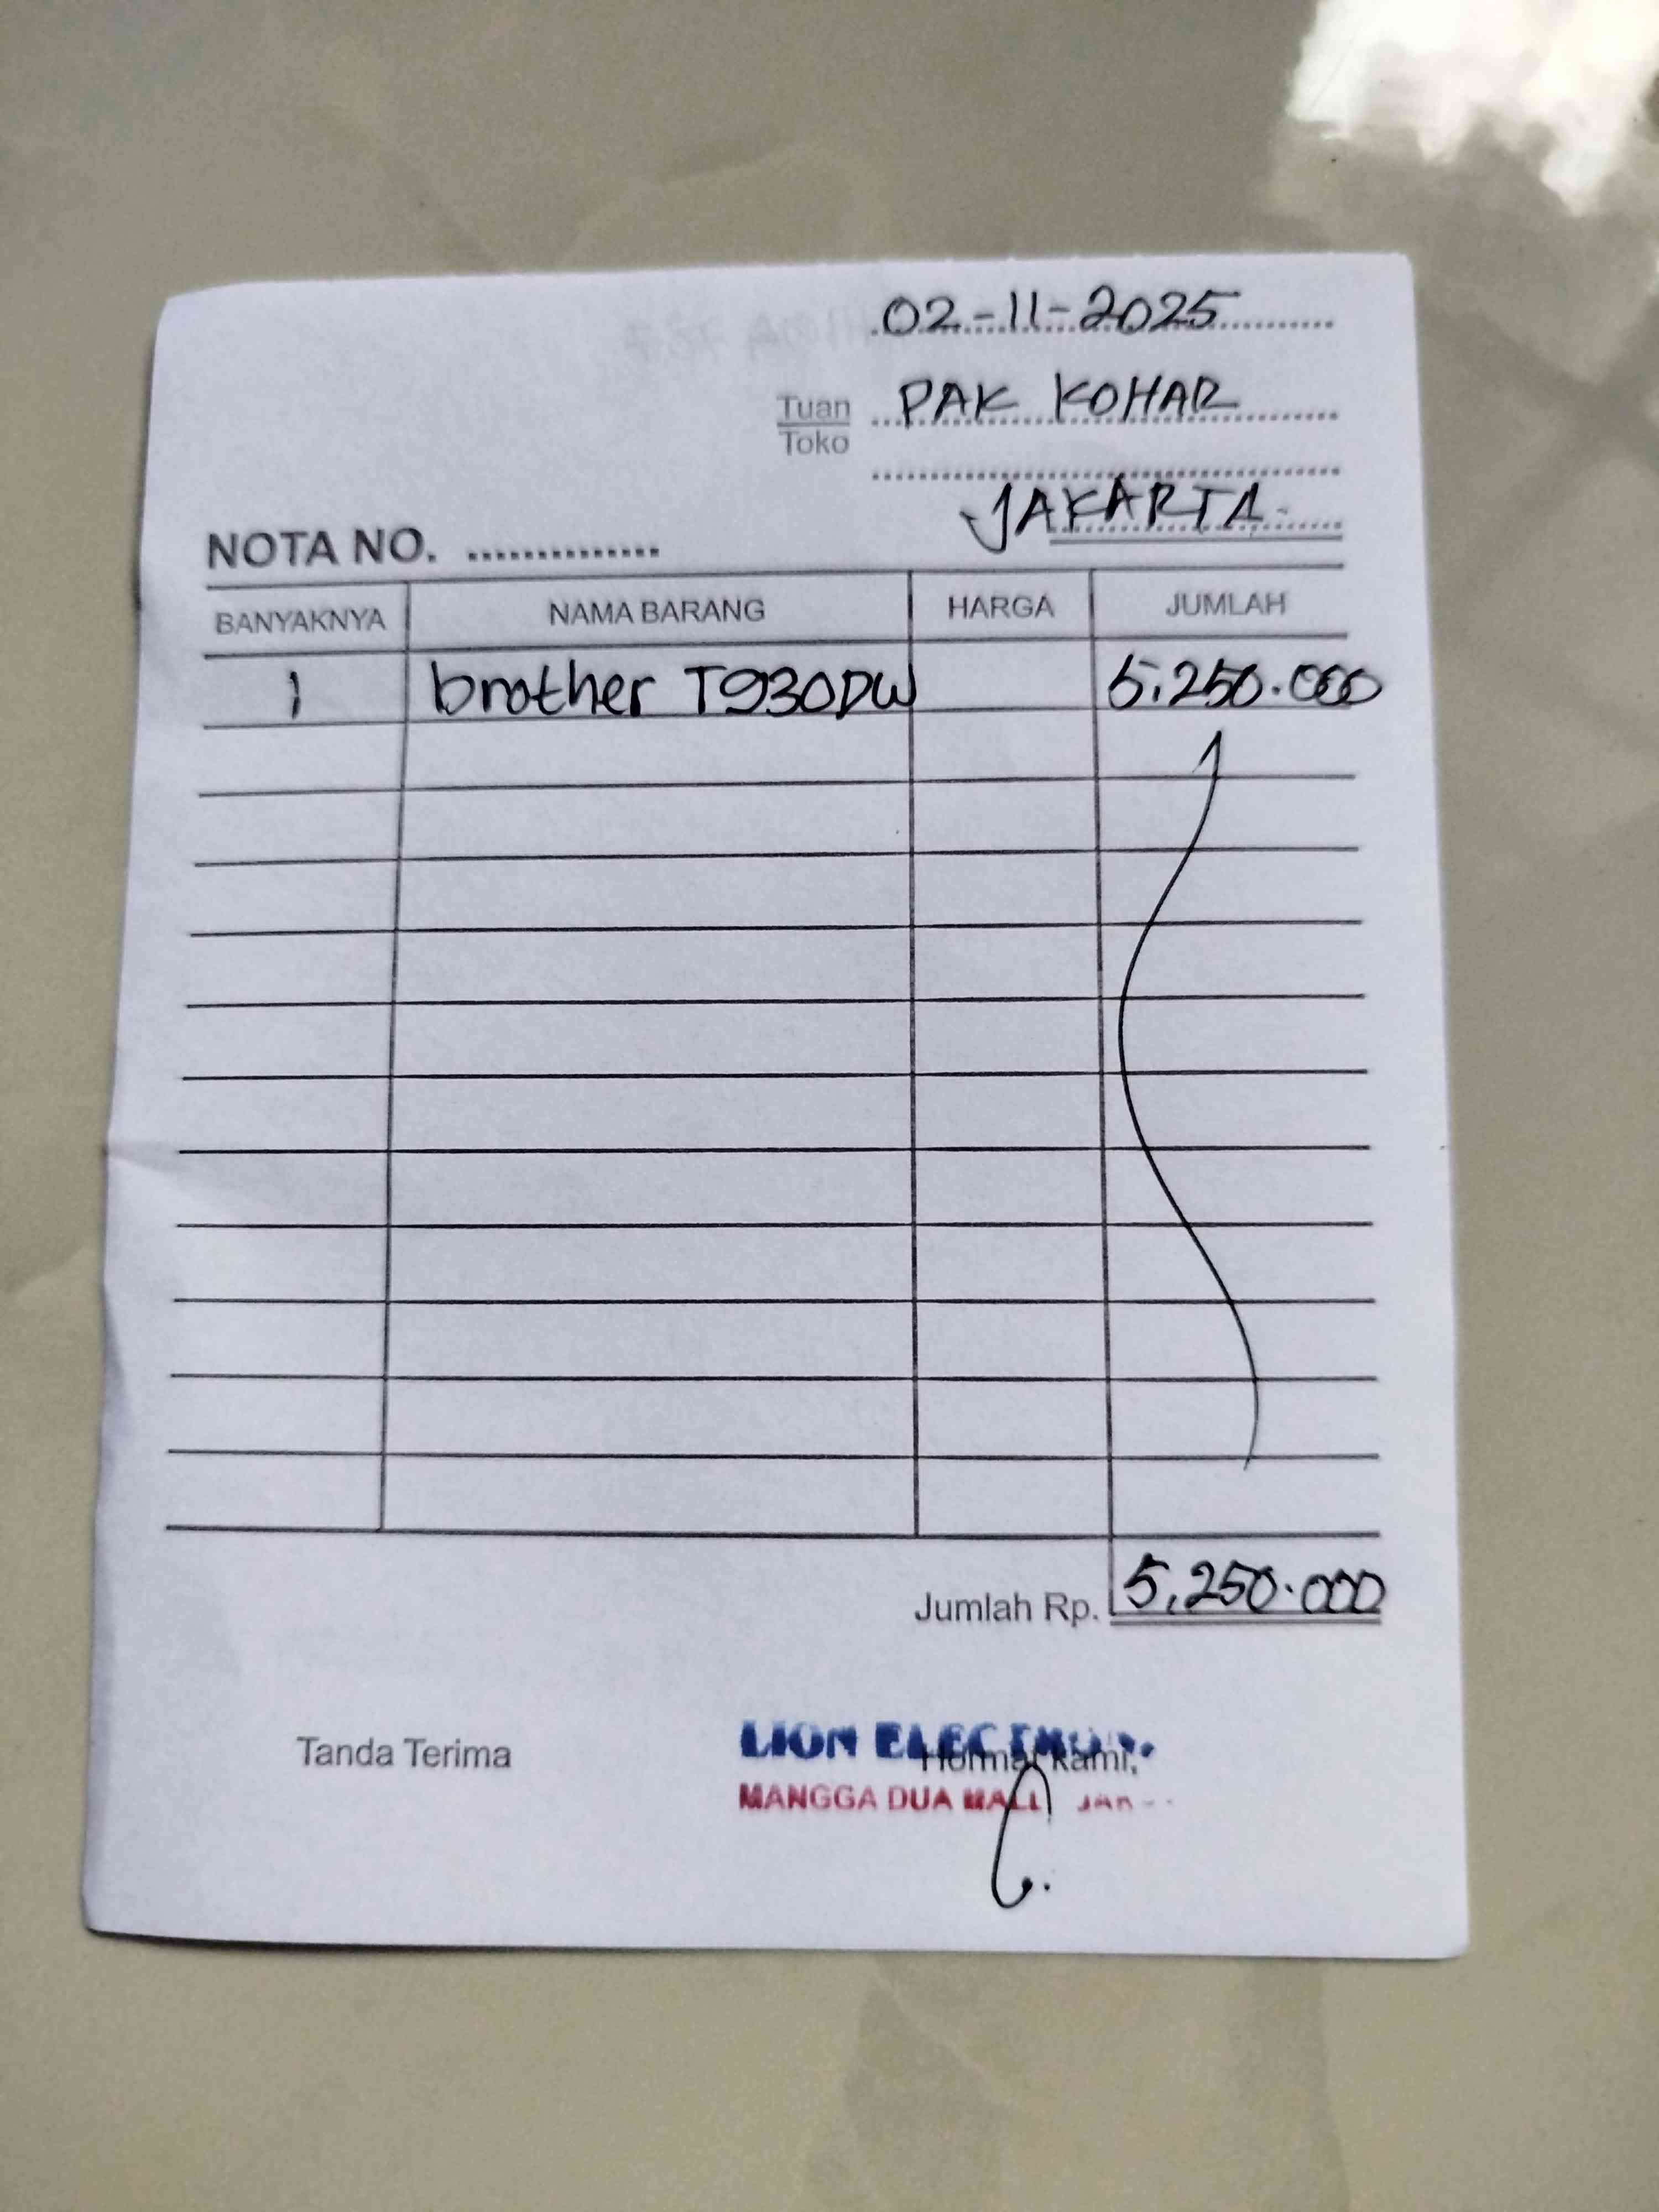 02-11-2025
Tuan PAK KOHAR
Toko
JAKARTA
NOTA NO. ..............
BANYAKNYA NAMA BARANG HARGA JUMLAH
1 brother T930DW 5.250.000
Jumlah Rp. 5,250.000
Tanda Terima
LION
Hormat kami,
MANGGA DUA MALL